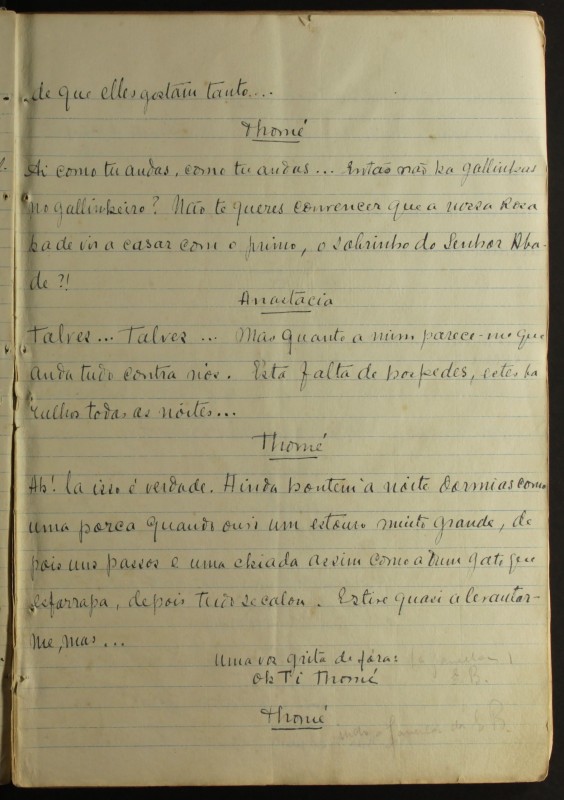 de que elles gostam tanto....
Thomé
Ai como tu andas, como tu andas... Então não ha gallinhas
no gallinheiro? Não te queres convencer que a nossa Rosa
ha de vir a casar com o primo, o sobrinho do Senhor Aba-
de?!
Anastácia
Talvez... Talvez... Mas quanto a mim parece-me que
anda tudo contra nós. Esta falta de hospedes, estes ba
rulhos todas as noites...
Thomé
Ah! la isso é verdade. Ainda hontem á noite dormias como
uma porca quando ouvi um estouro muito grande, de
pois uns passos e uma chiada assim como a d'um gato que
esfarrapa, depois tudo se calou. Estive quasi a levantar-
me, mas...
Uma voz grita de fóra:
Oh Ti Thomé
Thomé